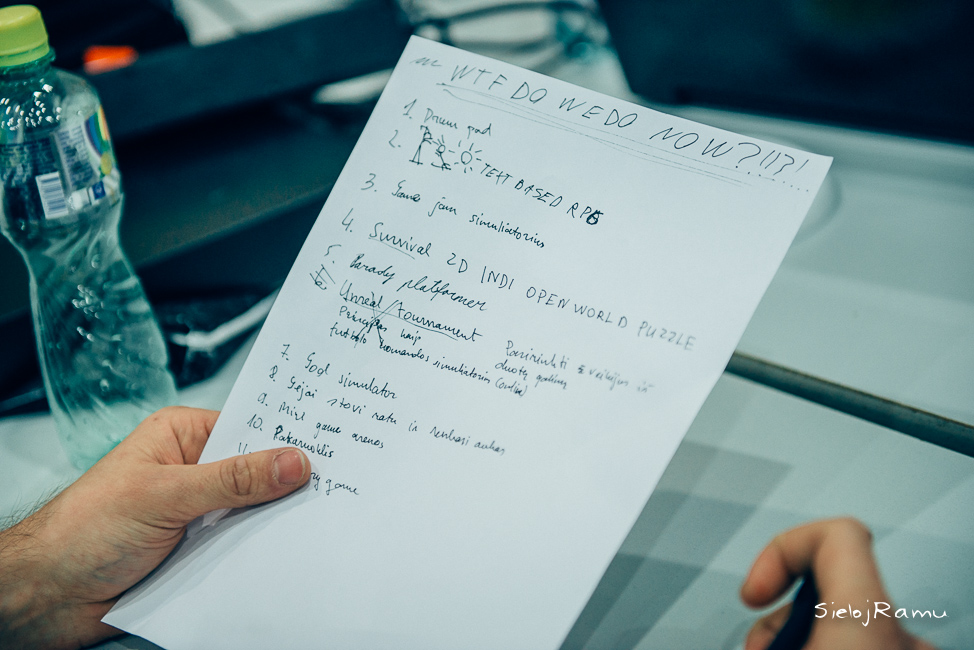 WTF DO WE DO NOW?!!?!
1. Drum pad
2. TEXT BASED RPG
3. Game jam simuliatorius
4. Survival 2D INDI OPEN WORLD PUZZLE
5. Parady platformer
6. Unreal tournament
Pasirinkti 2 veikėjus iš
duotų
futbolo komandos simuliatorius (online)
7. God simulator
8. Gėjai stovi ratu ir renkasi
9. Mini game arenos
10. Pakaruoklis
11.
ry game
SielojRamu